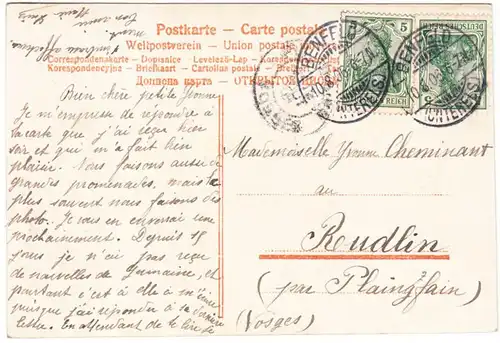 Postkarte – Carte postale
Weltpostverein – Union postale
Correspondenzkarte – Dopisnice – Levelező-Lap –
Korespondencyjna – Briefkaart – Cartolina postale –
Дописна карта – ОТКРЫТОЕ
BENFELD
BENFELD
(UNTERELS.)
(UNTERELS.)
5
REICH
Bien chère petite Yvonne
Je m'empresse de répondre à
ta carte que j'ai reçue hier
soir et qui m'a fait bien
plaisir. Nous faisons aussi de
grandes promenades, mais le
plus souvent nous faisons des
photo. Je vous en enverrai une
prochainement. Depuis 15
jours je n'ai pas reçu
de nouvelles de Germaine, et
pourtant c'est à elle à m'écrire
puisque j'ai répondu à sa dernière
lettre. En attendant de te lire je
Mademoiselle Yvonne Cheminant
au
Rudlin
(par Plainfain)
(Vosges)